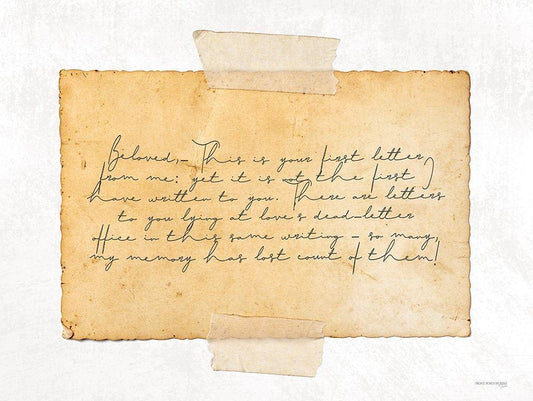 Beloved,— This is your first letter
from me; yet it is not the first I
have written to you. There are letters
to you lying at love's dead-letter
office in this same writing – so many,
my memory has lost count of them!